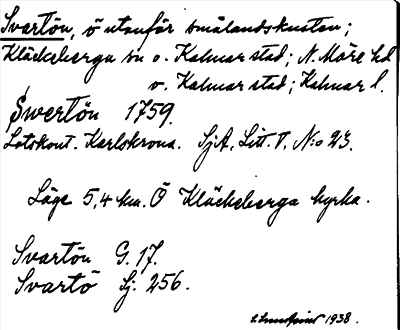 Svartön, ö utanför smålandskusten;
Kläckeberga sn o. Kalmar stad; N. Möre hd
o. Kalmar stad; Kalmar l.
Swertön 1759.
Lotskont. Karlskrona. SjA, Litt. T. N:o 23.
Läge 5,4 km. Ö Kläckeberga kyrka.
Svartön G. 17.
Svartö Sj. 256.
1938.